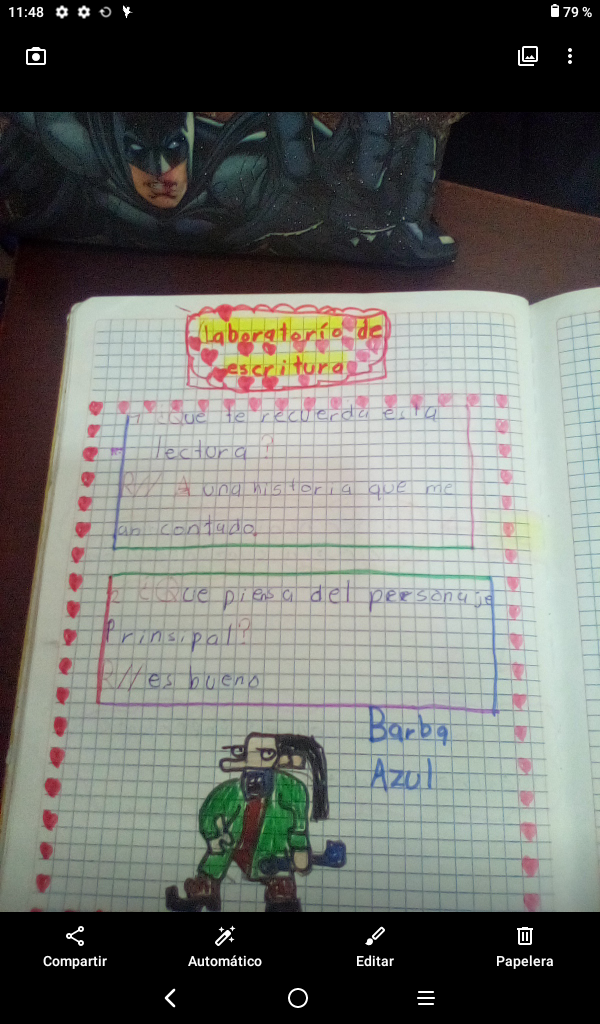 11:48
79 %
laboratorío de
escritura
1 ¿Que te recuerda esta
lectura?
R// A una historia que me
an contado.
2 ¿Que piensa del personaje
Prinsipal?
R// es bueno
Barba
Azul
Compartir
Automático
Editar
Papelera